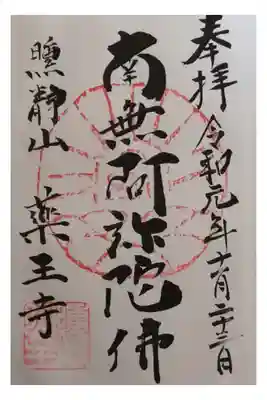 奉拝 令和元年十一月二十三日
南無阿弥陀佛
薬王寺